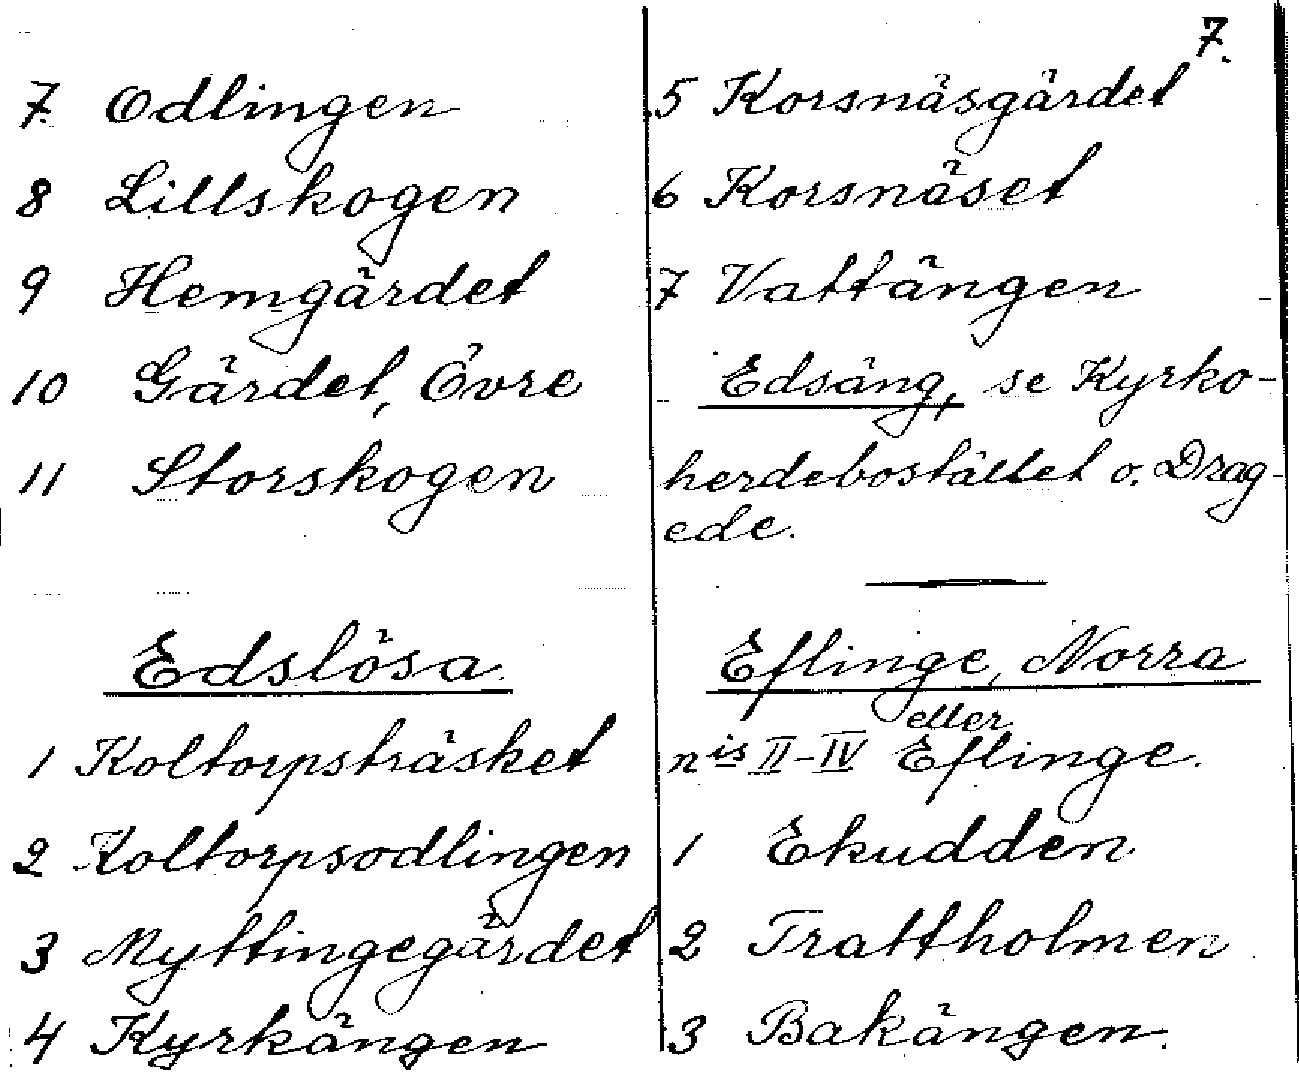 7.
7. Odlingen
8 Lillskogen
9 Hemgärdet
10 Gärdet, Övre
11 Storskogen
Edslösa.
1 Koltorpsträsket
2 Koltorpsodlingen
3 Myttingegärdet
4 Kyrkängen
5 Korsnäsgärdet
6 Korsnäset
7 Vattängen
Edsäng, se Kyrko-
herdebostället o. Drag-
ede.
Eflinge, Norra
eller
nis II-IV Eflinge.
1 Ekudden.
2 Trattholmen
3 Bakängen.